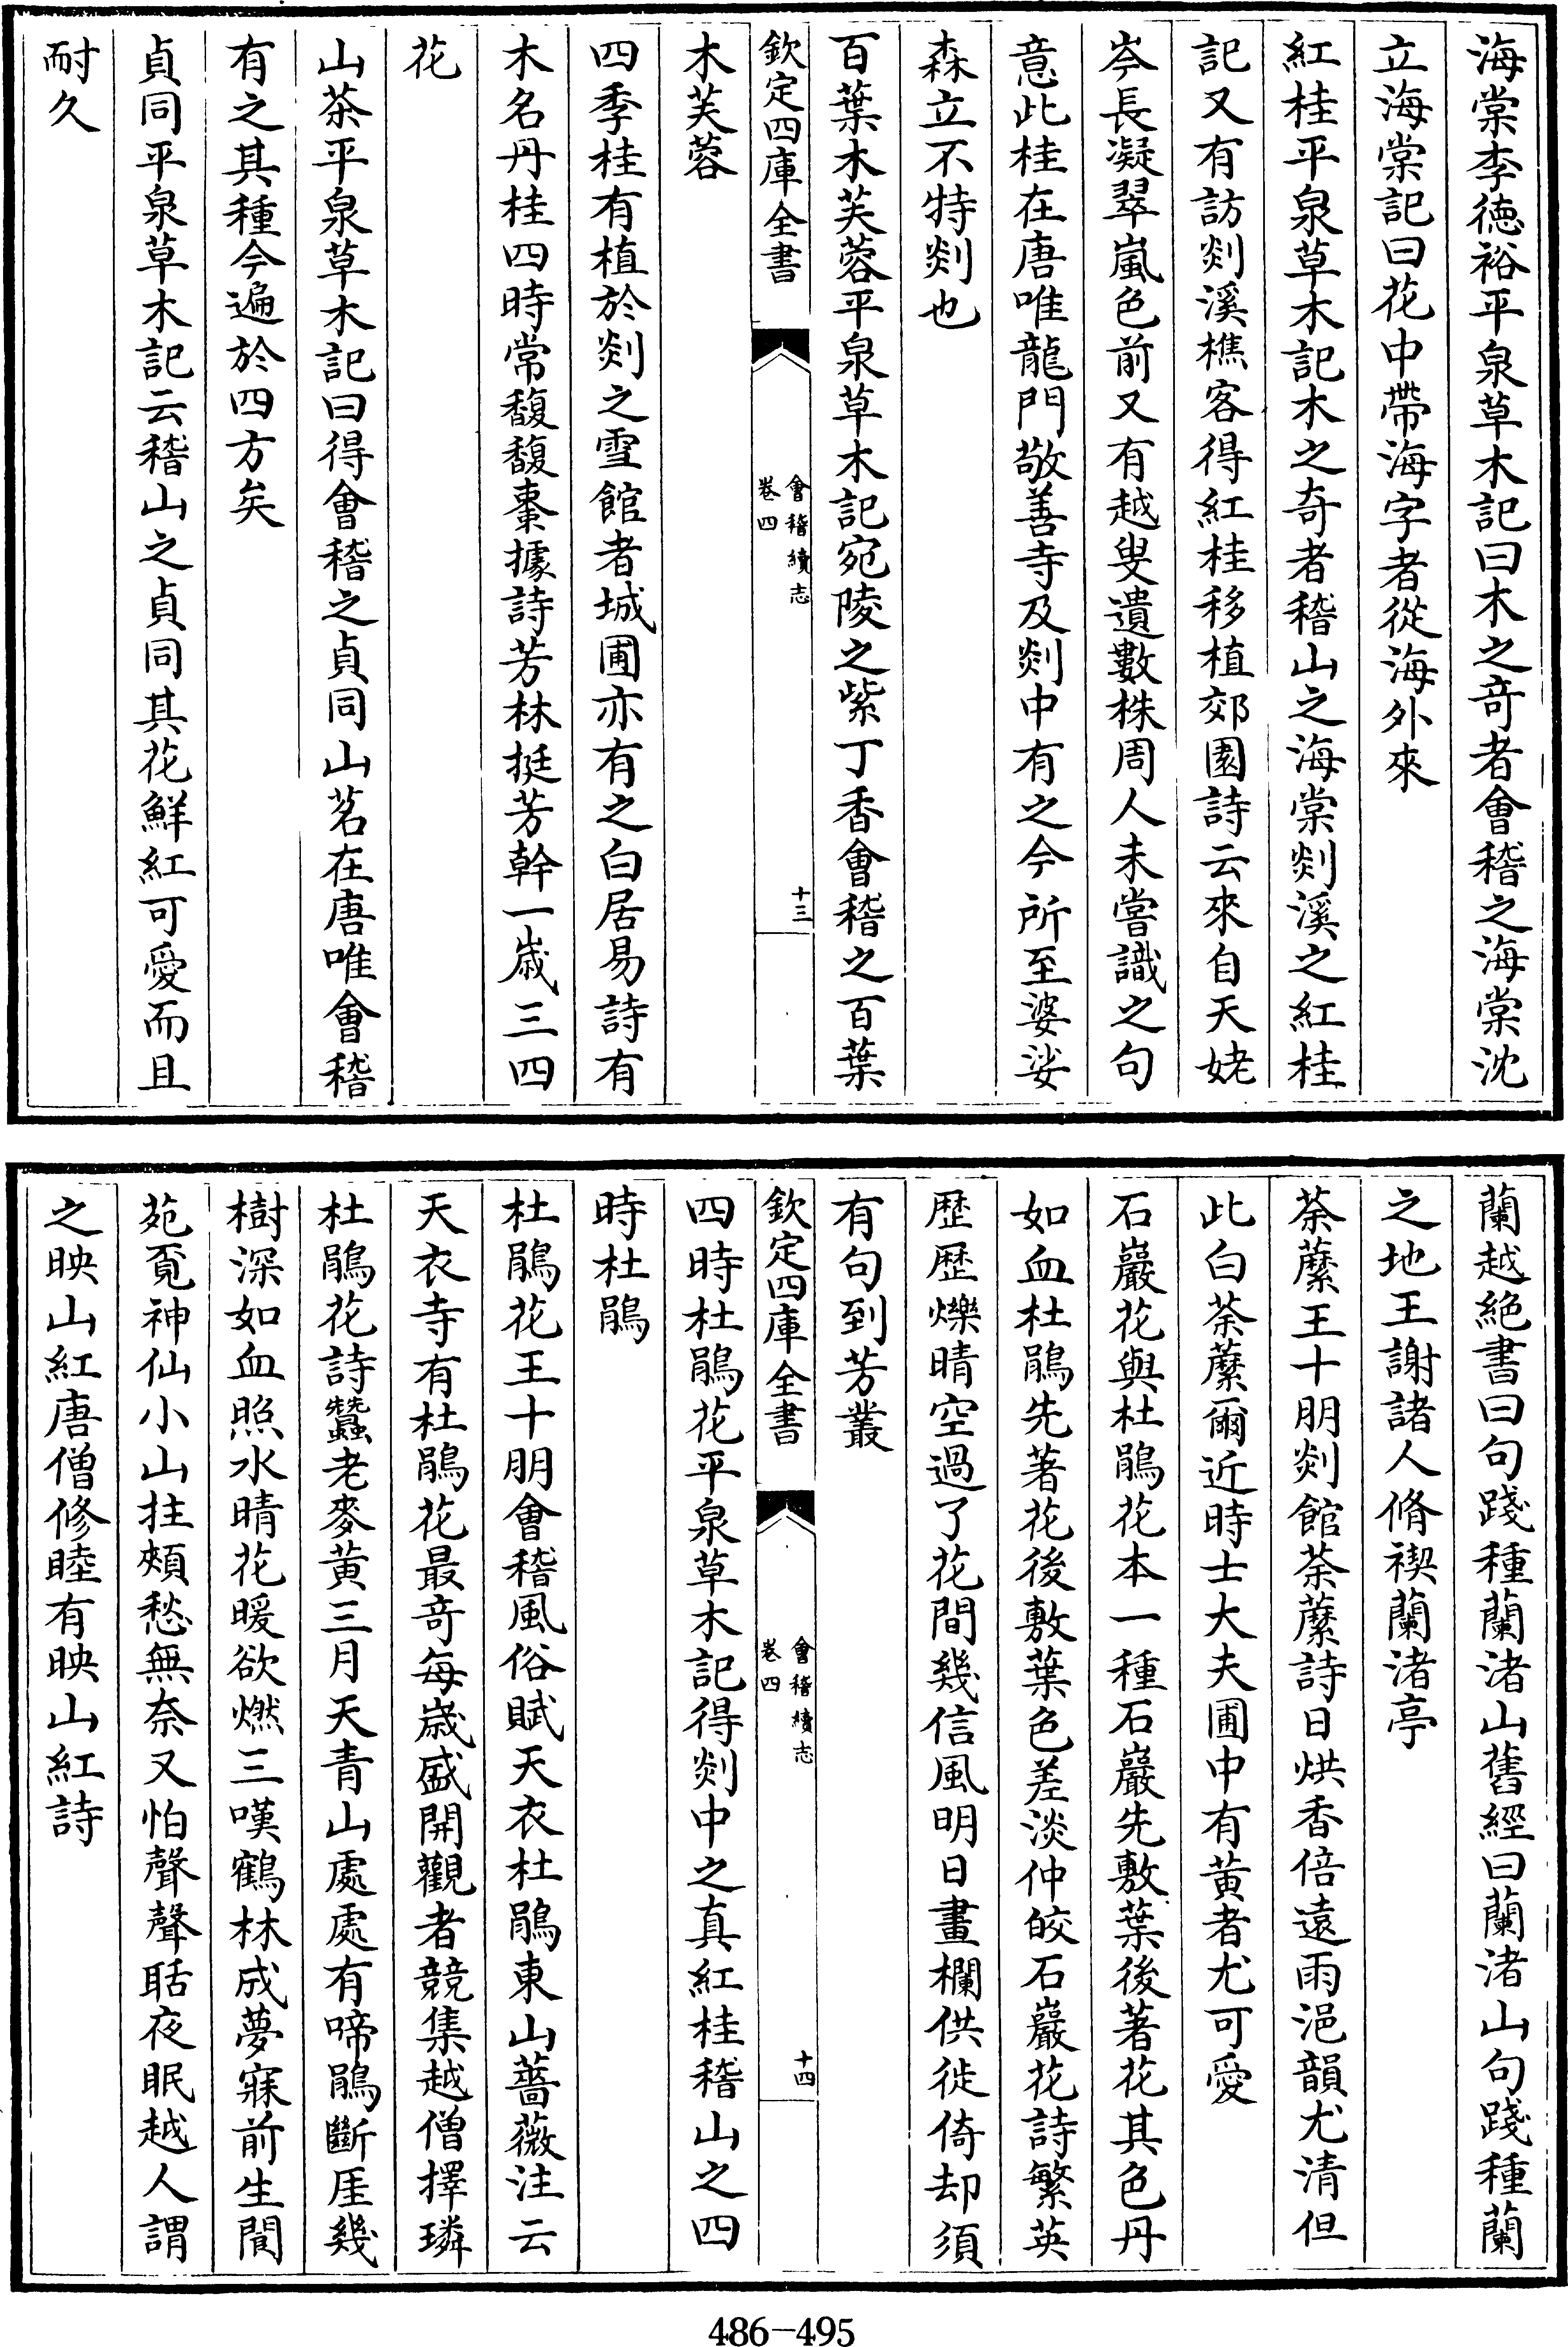 海棠李德裕平泉草木記曰木之竒者會稽之海棠沈
立海棠記曰花中帶海字者從海外來
紅桂平泉草木記木之奇者稽山之海棠剡溪之紅桂
記又有訪剡溪樵客得紅桂移植郊園詩云來自天姥
岑長凝翠嵐色前又有越叟遺數株周人未嘗識之句
意此桂在唐唯龍門敬善寺及剡中有之今所至婆娑
森立不特剡也
百葉木芙蓉平泉草木記宛陵之紫丁香會稽之百葉
欽定四庫全書
會稽續志
卷四
十三
木芙蓉
四季桂有植於剡之雪館者城圃亦有之白居易詩有
木名丹桂四時常馥馥棗據詩芳林挺芳幹一歲三四
花
山茶平泉草木記曰得會稽之貞同山茗在唐唯會稽
有之其種今遍於四方矣
貞同平泉草木記云稽山之貞同其花鮮紅可愛而且
耐久
蘭越絕書曰句踐種蘭渚山舊經曰蘭渚山句踐種蘭
之地王謝諸人脩禊蘭渚亭
荼蘼王十朋剡館荼蘼詩日烘香倍遠雨浥韻尤清但
此白荼蘼爾近時士大夫圃中有黄者尤可愛
石巖花與杜鵑花本一種石巖先敷葉後著花其色丹
如血杜鵑先著花後敷葉色差淡仲皎石巖花詩繁英
歴歴爍晴空過了花間幾信風明日畫欄供徙倚却須
有句到芳叢
欽定四庫全書
會稽續志
卷四
十四
四時杜鵑花平泉草木記得剡中之真紅桂稽山之四
時杜鵑
杜鵑花王十朋會稽風俗賦天衣杜鵑東山薔薇注云
天衣寺有杜鵑花最竒每歲盛開觀者競集越僧擇璘
杜鵑花詩蠶老麥黄三月天青山處處有啼鵑斷厓幾
樹深如血照水晴花暖欲燃三嘆鶴林成夢寐前生閬
苑覔神仙小山拄頰愁無奈又怕聲聲聒夜眠越人謂
之映山紅唐僧修睦有映山紅詩
486-495